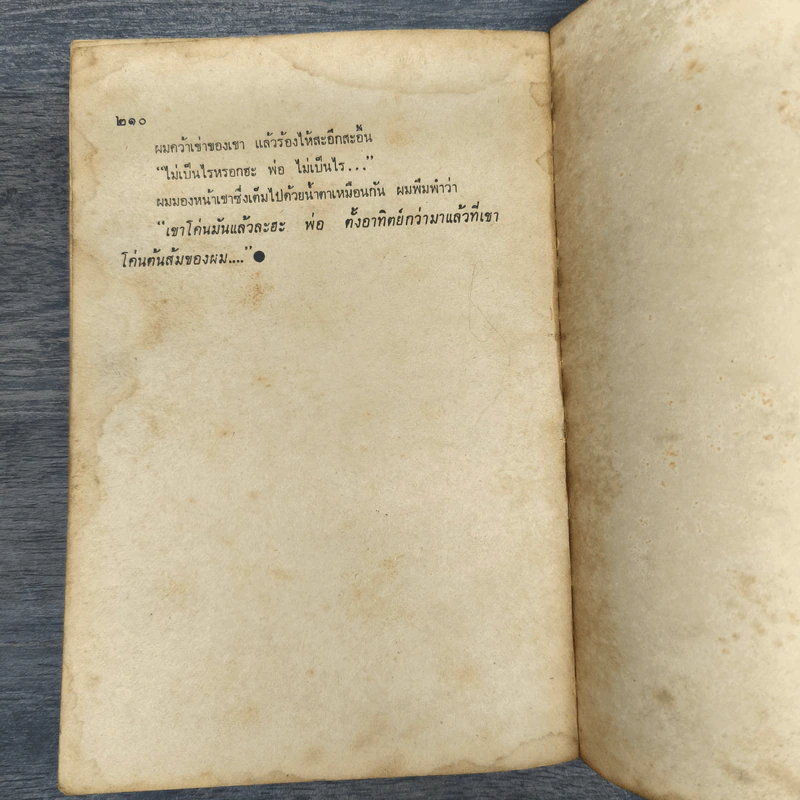 ๒๑๐
ผมคว้าเข่าของเขา แล้วร้องไห้สะอึกสะอื้น
“ไม่เป็นไรหรอกฮะ พ่อ ไม่เป็นไร...”
ผมมองหน้าเขาซึ่งเต็มไปด้วยน้ำตาเหมือนกัน ผมพึมพำว่า
“เขาโค่นมันแล้วละฮะ พ่อ ตั้งอาทิตย์กว่ามาแล้วที่เขา
โค่นต้นส้มของผม....” ●